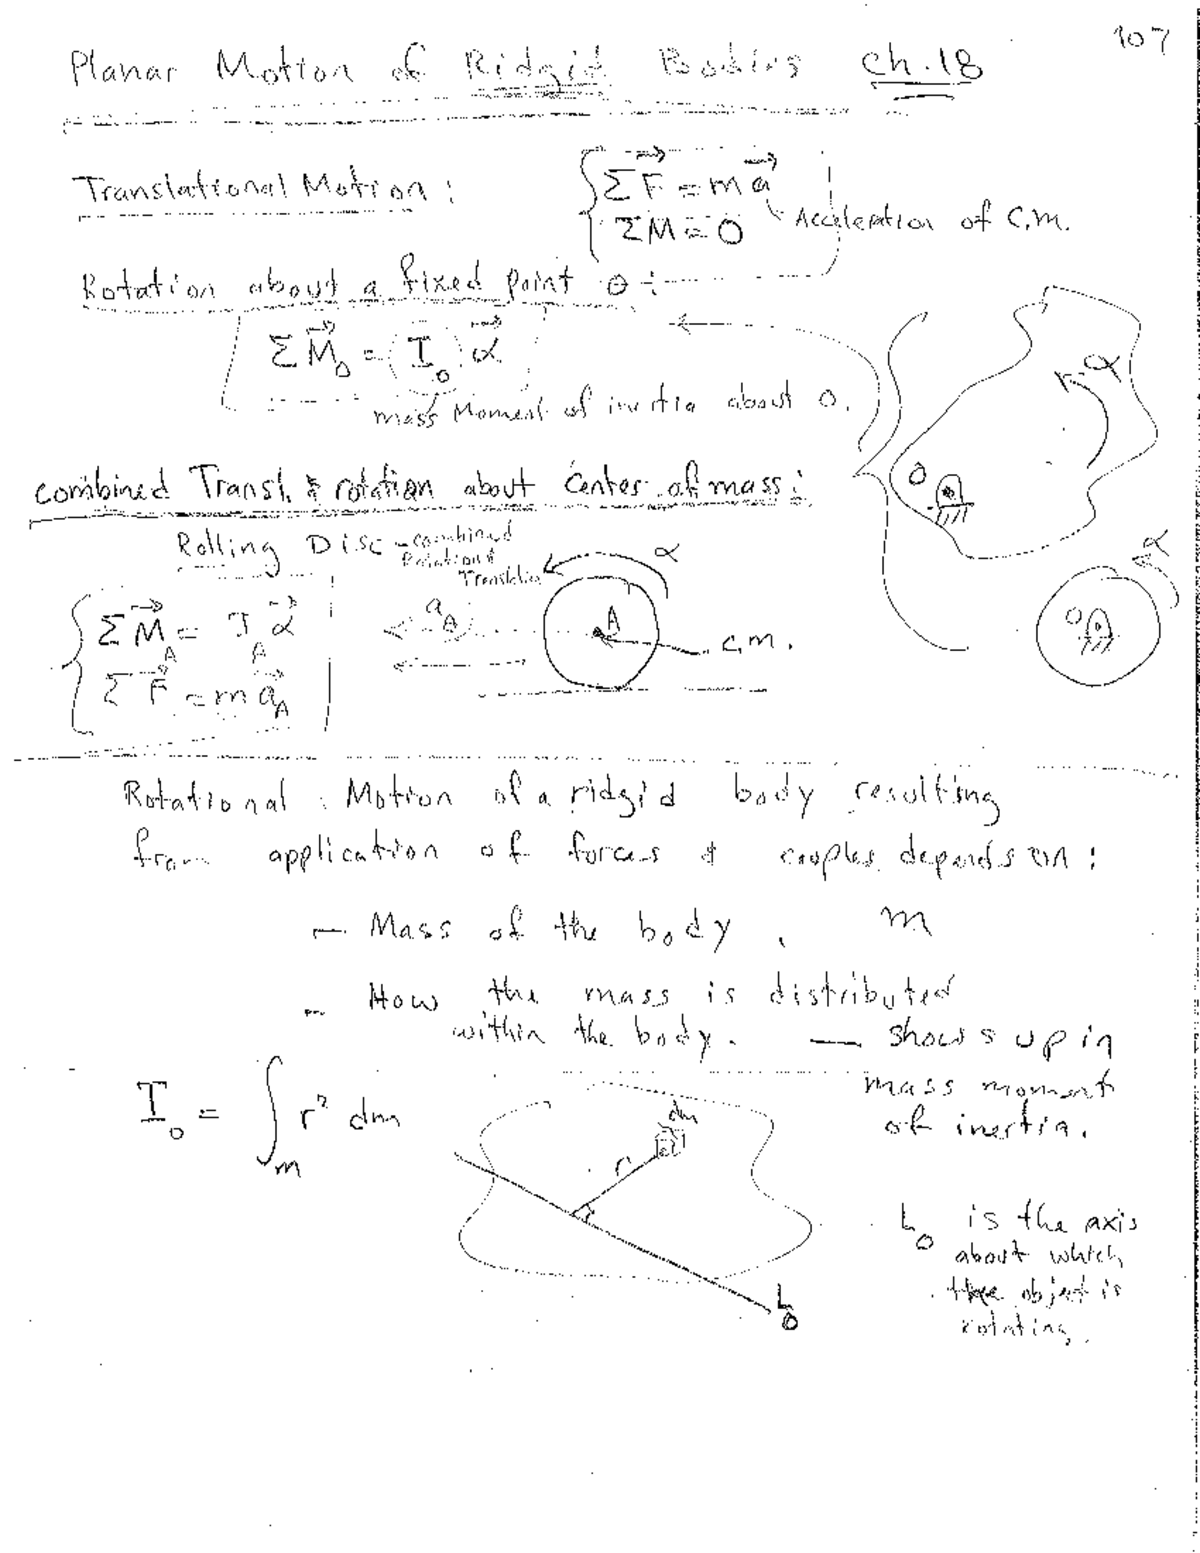 107
Planar Motion of Ridgid Bodies Ch.18
Translational Motion :
ΣF = ma
ΣM = 0
Acceleration of C.M.
Rotation about a fixed point O :
ΣM_O = I_O α
mass Moment of inertia about O.
α
O
combined Transl. & rotation about Center of mass :
Rolling Disc - combined
Rotation &
Translation
α
ΣM_A = I_A α
a_A
A
C.M.
ΣF = m a_A
α
O
Rotational Motion of a ridgid body resulting
from application of forces & couples depends on :
- Mass of the body , m
- How the mass is distributed
within the body. — shows up in
mass moment
of inertia.
I_O = ∫_m r² dm
dm
r
L_O
L_O is the axis
about which
the object is
rotating.